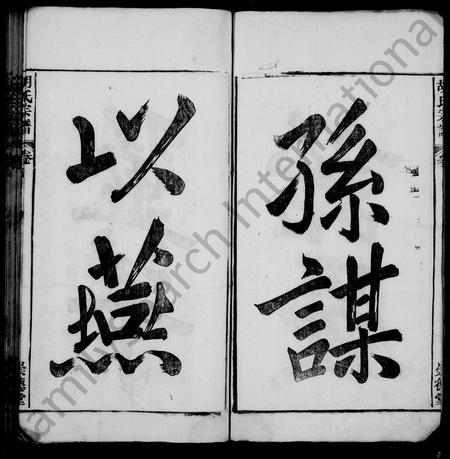 孫謀
以燕
胡氏宗譜
胡氏宗譜
Family Search International